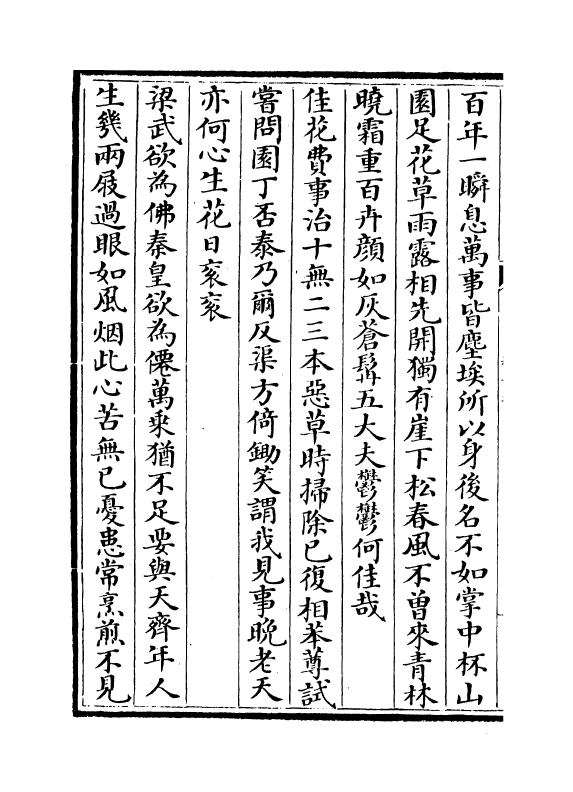 百年一瞬息萬事皆塵埃所以身後名不如掌中杯山
園足花草雨露相先開獨有崖下松春風不曽來青林
曉霜重百卉顔如灰蒼髯五大夫鬱鬱何佳哉
佳花費事治十無二三本惡草時掃除已復相苯䔿試
嘗問園丁否泰乃爾反渠方倚鋤笑謂我見事晚老天
亦何心生花日衮衮
梁武欲為佛秦皇欲為僊萬乘猶不足要與天齊年人
生幾兩屐過眼如風烟此心苦無已憂患常烹煎不見